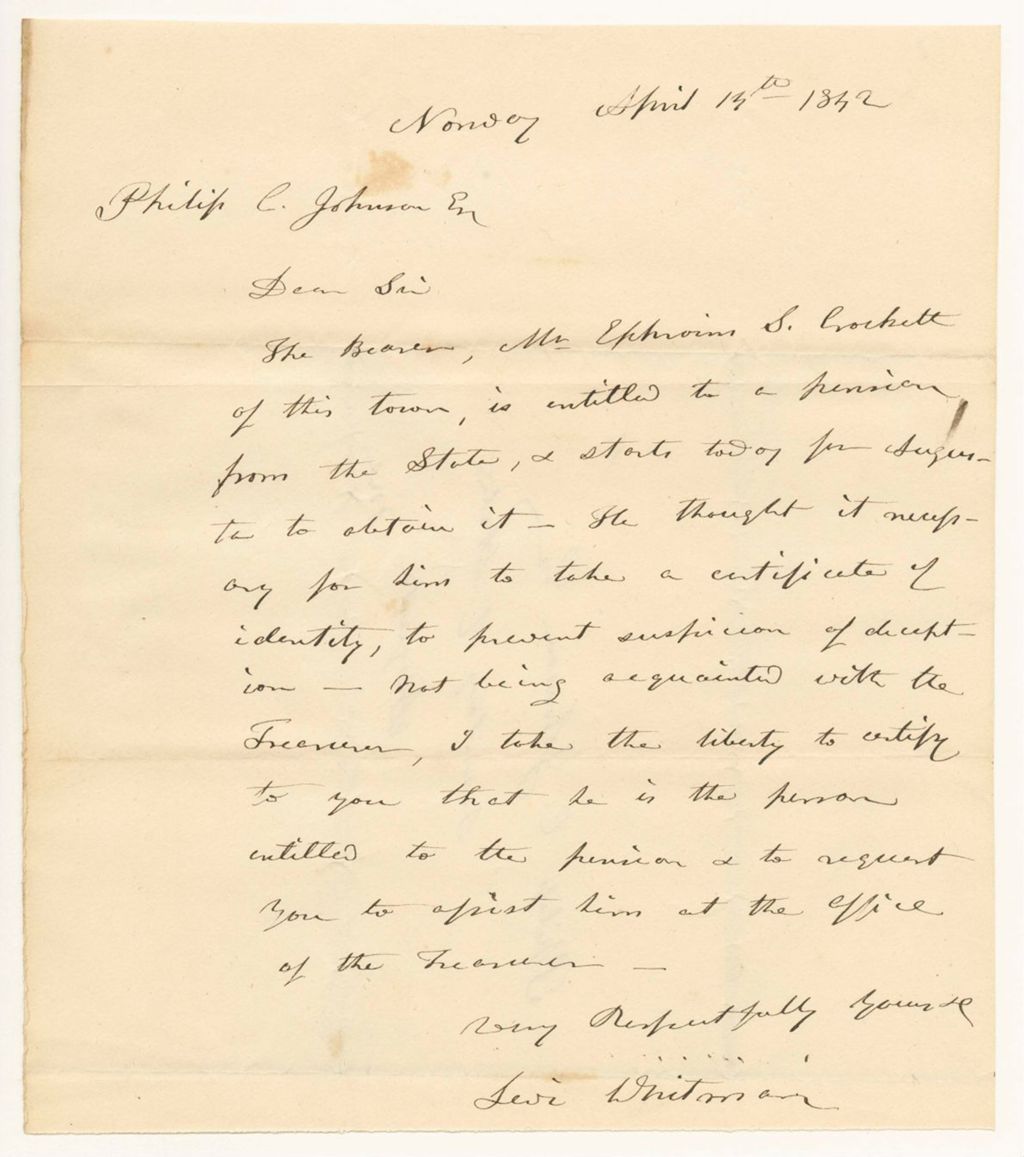 Norway April 14th 1842
Philip C. Johnson Esq
Dear Sir
The Bearer, Mr Ephraim S. Crockett
of this town, is entitled to a pension
from the State, & starts today for Augus-
ta to obtain it — He thought it necess-
ary for him to take a certificate of
identity, to prevent suspicion of decept-
ion — Not being acquainted with the
Treasurer, I take the liberty to certify
to you that he is the person
entitled to the pension & to request
you to assist him at the Office
of the Treasurer —
Very Respectfully Yours &c
Levi Whitman